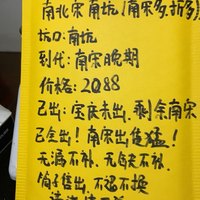 南北宋南坑(南宋多,折多)
坑口:南坑
到代:南宋晚期
价格:2088
已出:宝庆未出,剩余南宋
已全出!南宋出售猛!
无漏不补,无缺不补.
简售出,不退不换